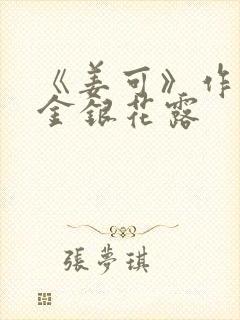 《姜可》作
金銀花露
張夢琪